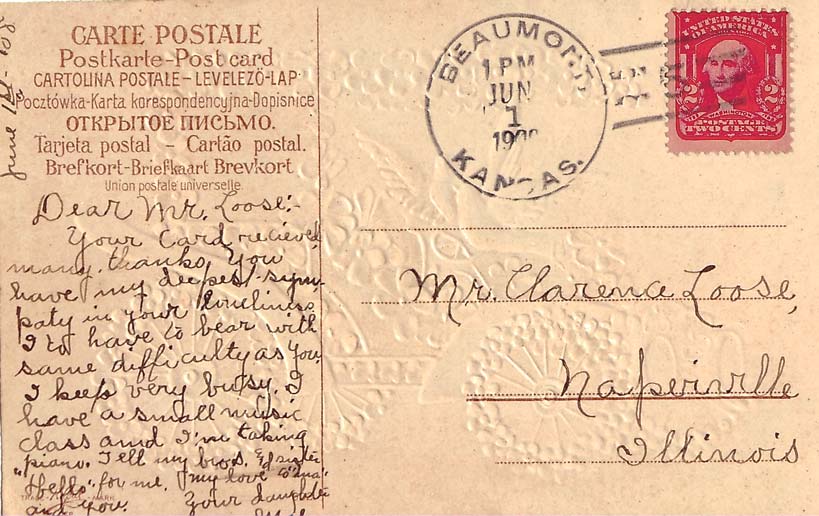 CARTE POSTALE
Postkarte-Post card
CARTOLINA POSTALE-LEVELEZŐ-LAP
Pocztówka-Karta korespondencyjna-Dopisnice
ОТКРЫТОЕ ПИСЬМО.
Tarjeta postal - Cartão postal.
Brefkort-Briefkaart Brevkort
Union postale universelle.
June 1st
Dear Mr. Loose:-
Your Card recieved
many thanks, You
have my deepest sym-
paty in your lonliness
I to have to bear with
same difficulty as you.
I keep very busy. I
have a small music
class and I'm taking
piano. Tell my bros. & sister
"Hello" for me. My love to "ma"
and you. Your daughter
BEAUMONT
1 PM
JUN
1
KANSAS.
UNITED STATES
OF AMERICA
2 2
WASHINGTON
POSTAGE
TWO CENTS
Mr. Clarence Loose,
Naperville
Illinois